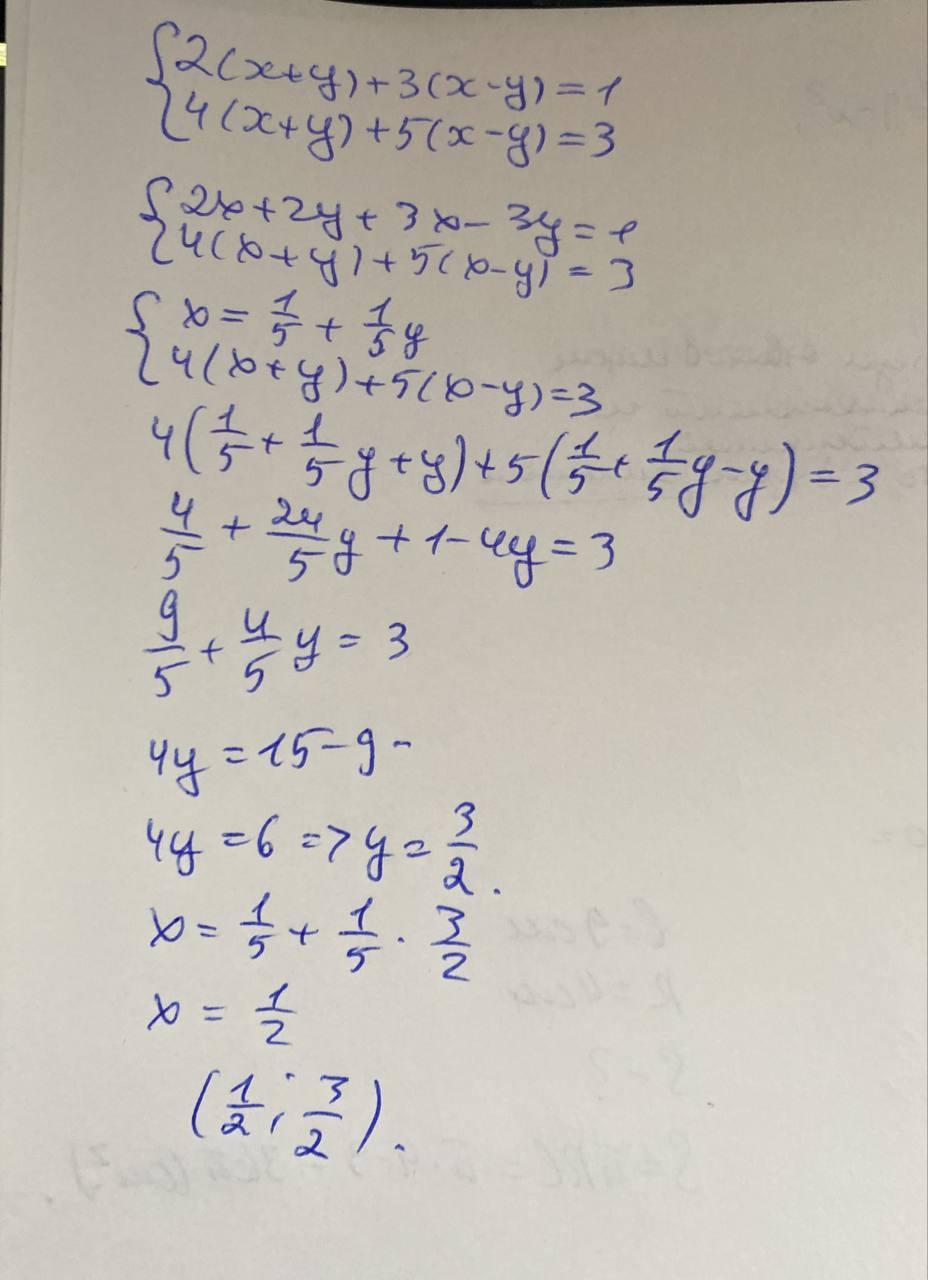 {2(x+y)+3(x-y)=1
{4(x+y)+5(x-y)=3
{2x+2y+3x-3y=1
{4(x+y)+5(x-y)=3
{x=1/5+1/5y
{4(x+y)+5(x-y)=3
4(1/5+1/5y+y)+5(1/5+1/5y-y)=3
4/5+24/5y+1-4y=3
9/5+4/5y=3
4y=15-9-
4y=6=>y=3/2.
x=1/5+1/5·3/2
x=1/2
(1/2;3/2).